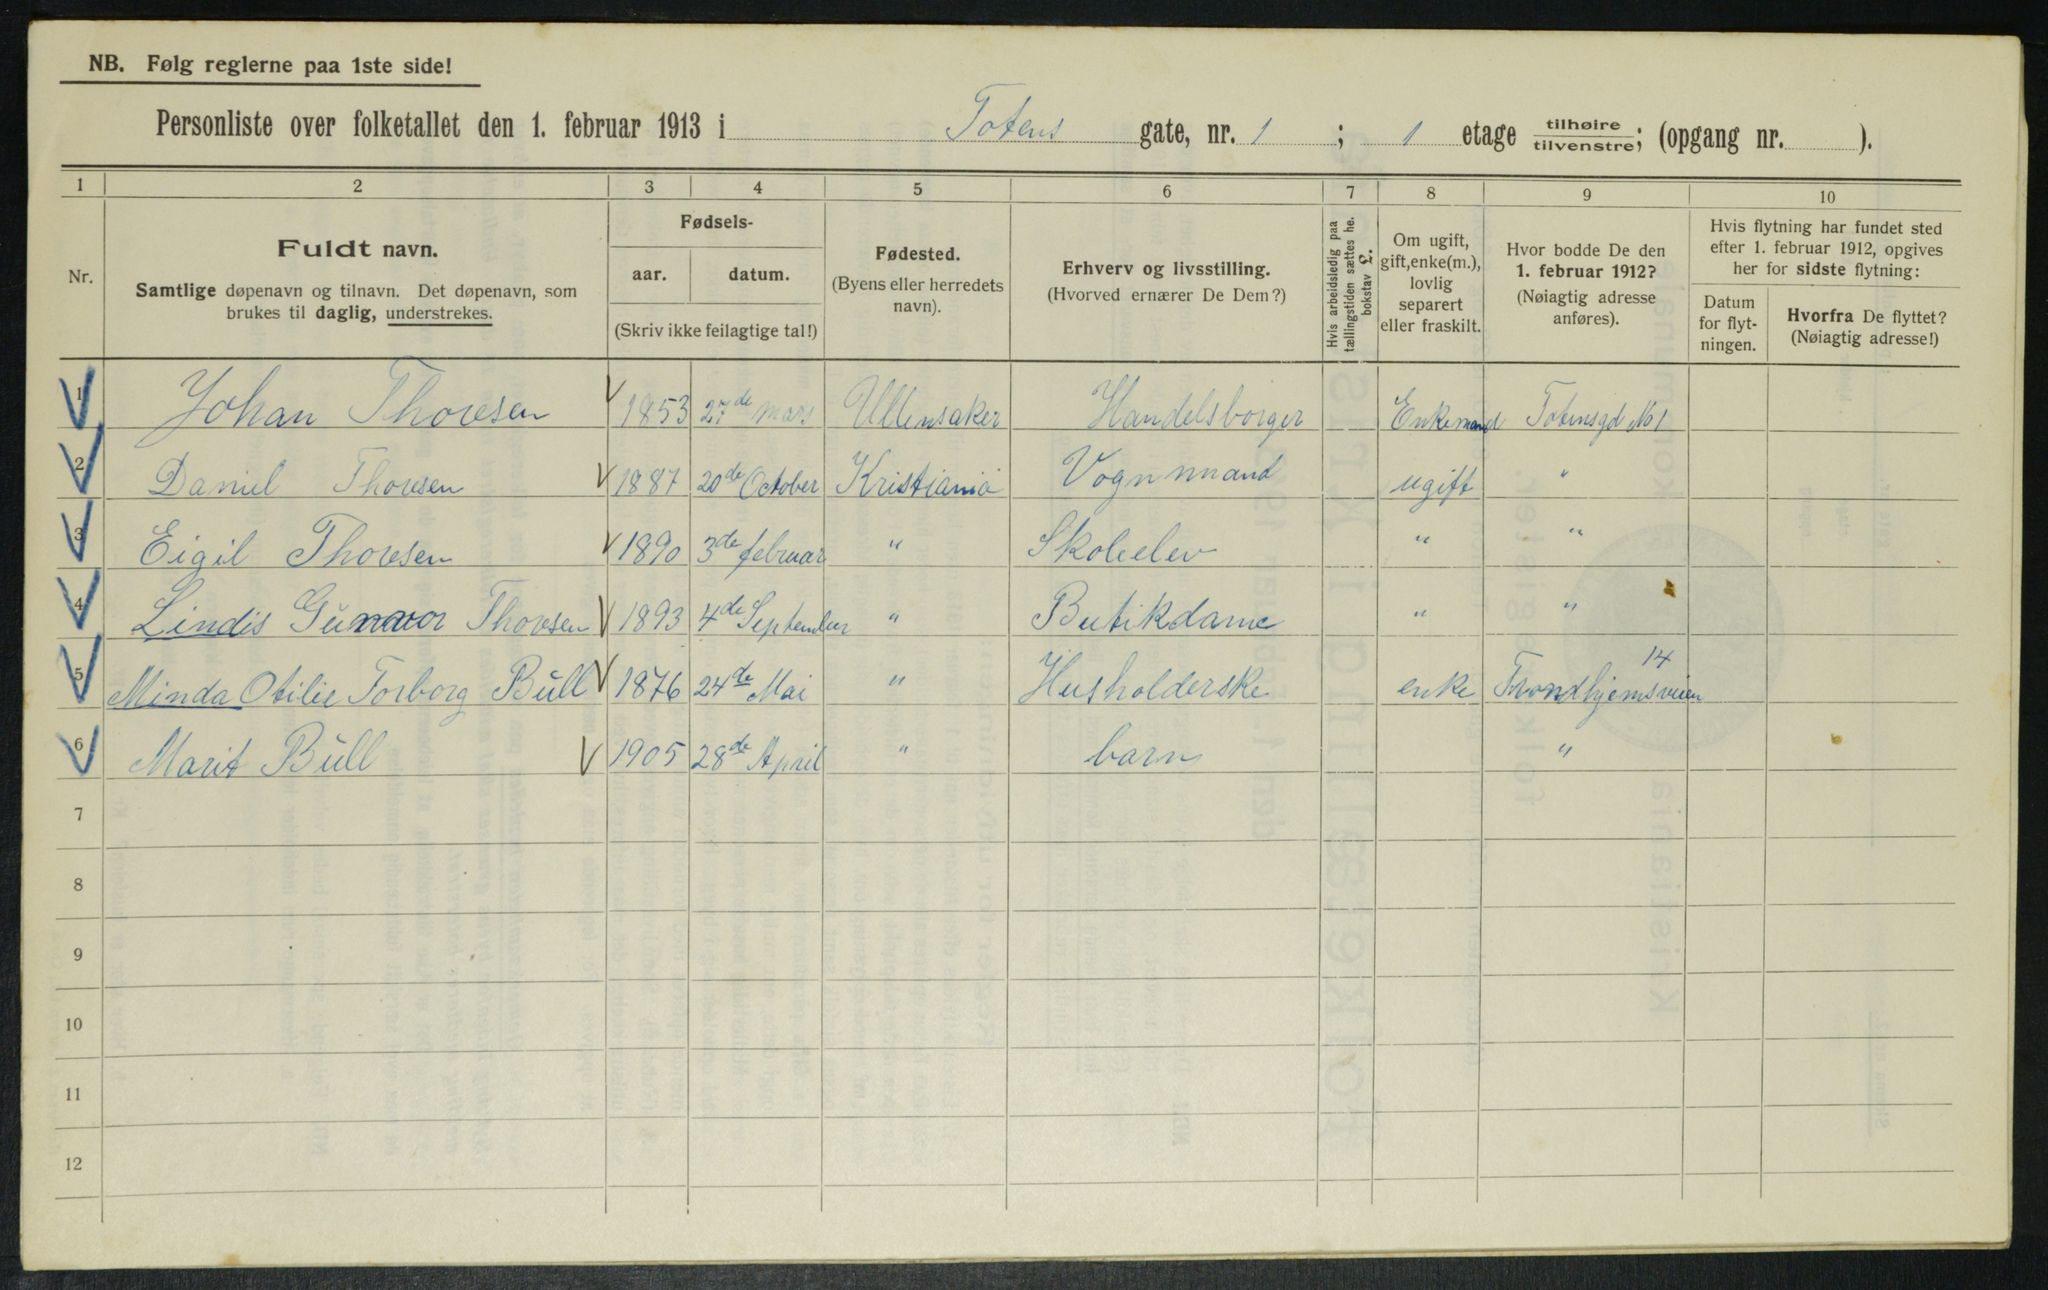 NB. Følg reglerne paa 1ste side!
Personliste over folketallet den 1. februar 1913 i Totens gate, nr. 1 ; 1 etage tilhøire tilvenstre; (opgang nr. ).
1 2 3 4 5 6 7 8 9 10
Nr.
Fuldt navn.
Samtlige døpenavn og tilnavn. Det døpenavn, som
brukes til daglig, understrekes.
Fødsels-
aar. datum.
(Skriv ikke feilagtige tal!)
Fødested.
(Byens eller herredets
navn).
Erhverv og livsstilling.
(Hvorved ernærer De Dem?)
Hvis arbeidsledig paa
tællingstiden sættes he.
bokstav L.
Om ugift,
gift, enke(m.),
lovlig
separert
eller fraskilt.
Hvor bodde De den
1. februar 1912?
(Nøiagtig adresse
anføres).
Hvis flytning har fundet sted
efter 1. februar 1912, opgives
her for sidste flytning:
Datum
for flyt-
ningen.
Hvorfra De flyttet?
(Nøiagtig adresse!)
1 Johan Thoresen 1853 27de mars Ullensaker Handelsborger Enkemand Totensgd No 1
2 Daniel Thoresen 1887 20de October Kristiania Vognmand ugift "
3 Eigil Thoresen 1890 3de februar " Skoleelev " "
4 Lindis Gunvor Thoresen 1893 4de September " Butikdame " "
5 Minda Otilie Torborg Bull 1876 24de Mai " Husholderske enke Trondhjemsveien 14
6 Marit Bull 1905 28de April " barn "
7
8
9
10
11
12